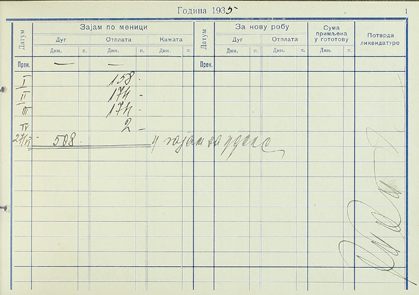 Година 1935
1
Датум Зајам по меници Датум За нову робу Сума примљена у готову Потврда ликвидатуре
Дуг Отплата Камата Дуг Отплата
Дин. п. Дин. п. Дин. п. Дин. п. Дин. п. Дин. п.
Прен. — — Прен.
I 158 -
II 174 -
III 174 -
IV 2 -
508 - у зајам за